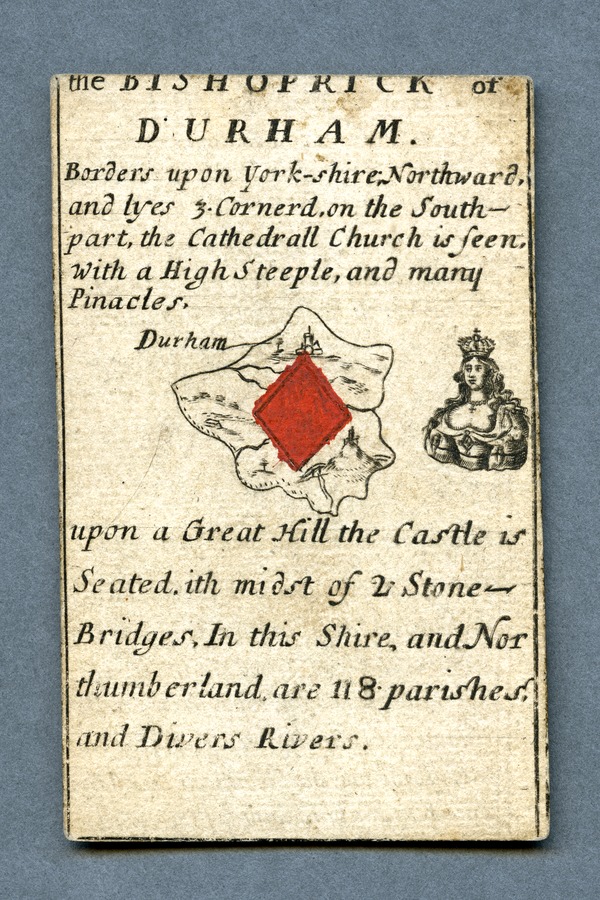 the BISHOPRICK of
DURHAM.
Borders upon York-shire, Northward,
and lyes 3. Cornerd, on the South-
part, the Cathedrall Church is seen,
with a High Steeple, and many
Pinacles,
Durham
upon a Great Hill the Castle is
Seated. ith midst of 2 Stone-
Bridges, In this Shire, and Nor
thumberland, are 118 parishes,
and Divers Rivers.